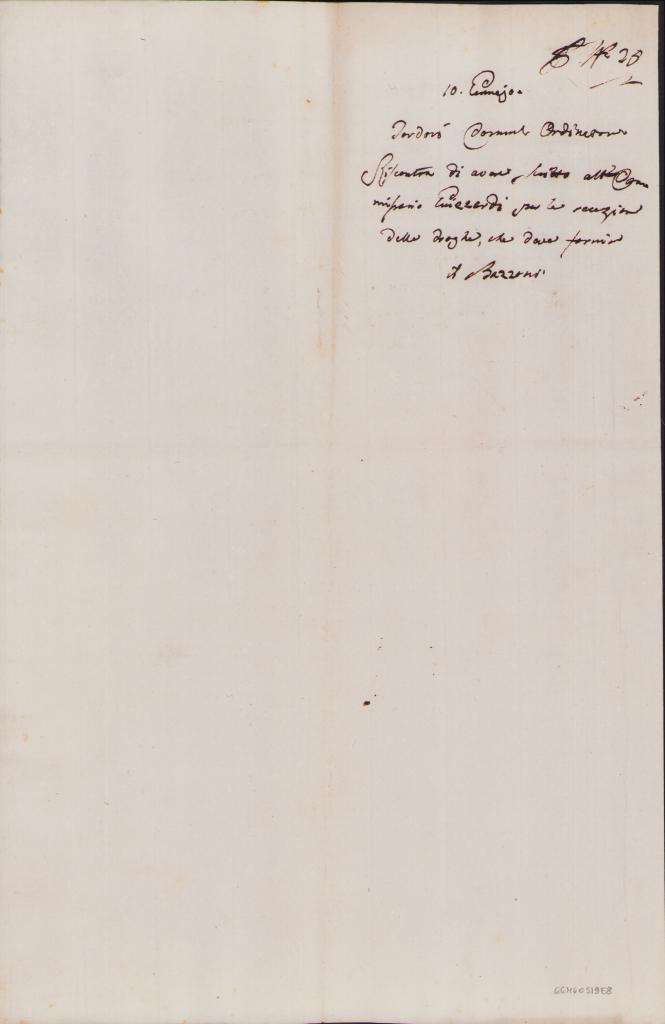 N° 28
10. Gennajo.
Commiss Ordinatore
Riscontra di avere scritto all Com
missario Guezardi per la recezione
delle droghe, che deve fornire
il Bazzoni
GGM60519E8